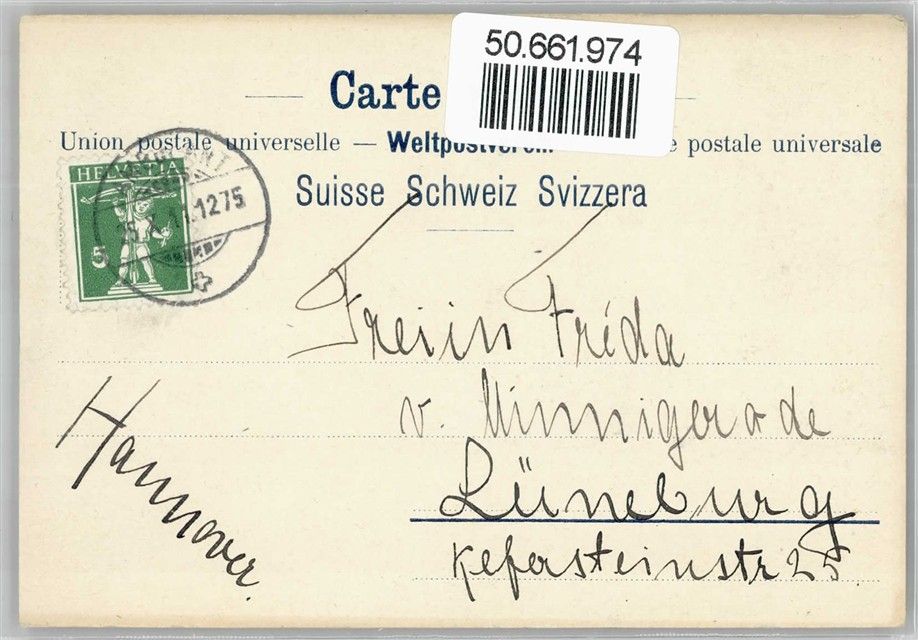 50.661.974
Carte
Union postale universelle — Weltpostverein e postale universale
Suisse Schweiz Svizzera
HELVETIA
5
1275
Freiin Fréda
v. Minnigerode
Lüneburg
Kefersteinstr 25
Hannover.